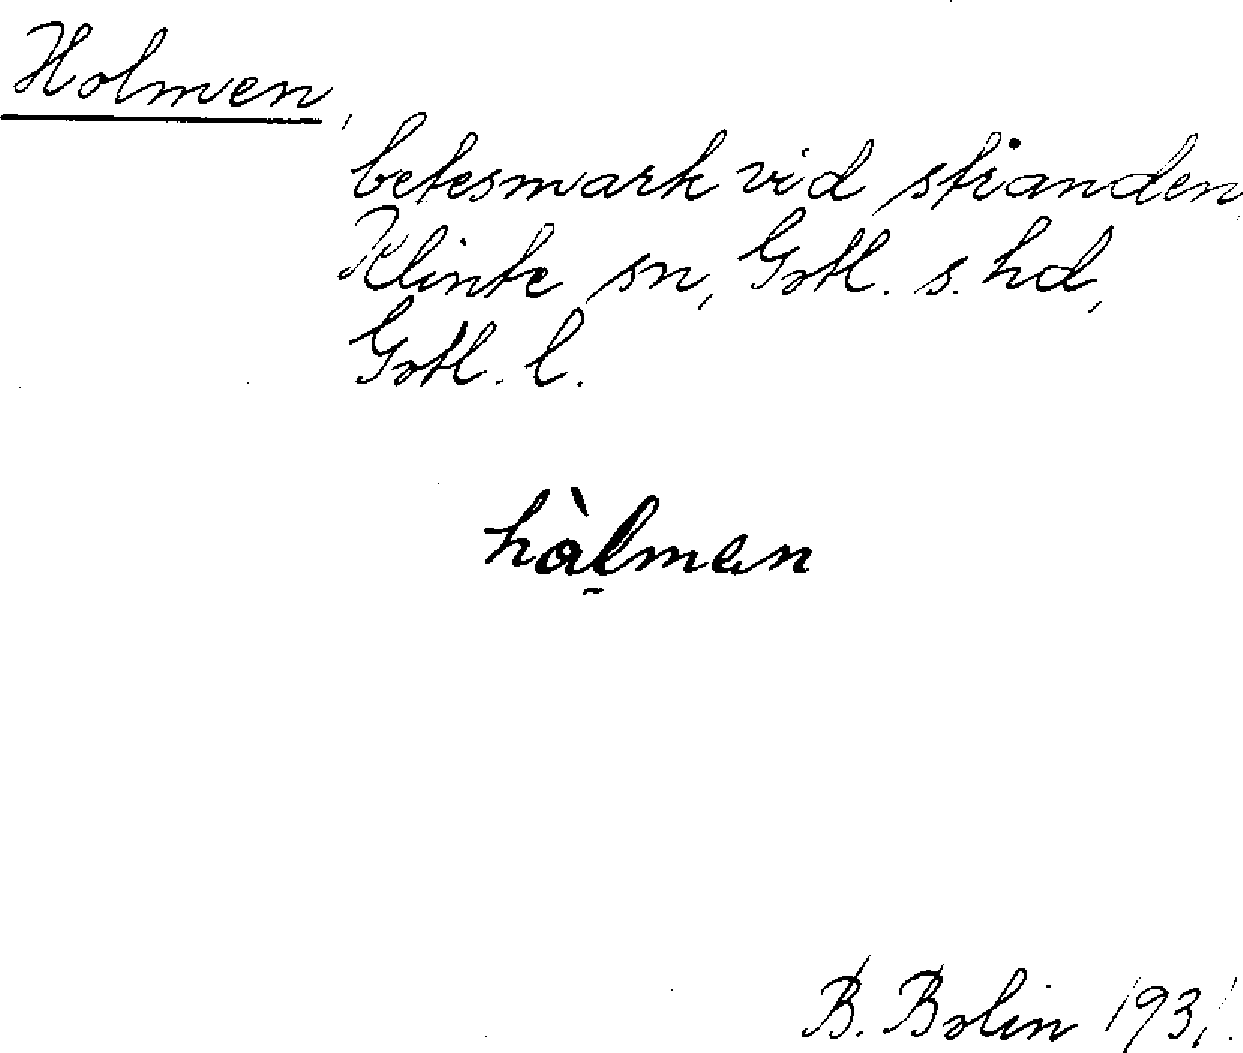 Holmen,
betesmark vid stranden,
Klinte sn, Gotl. s. hd,
Gotl. l.
hàlmen
B. Bolin 1931.